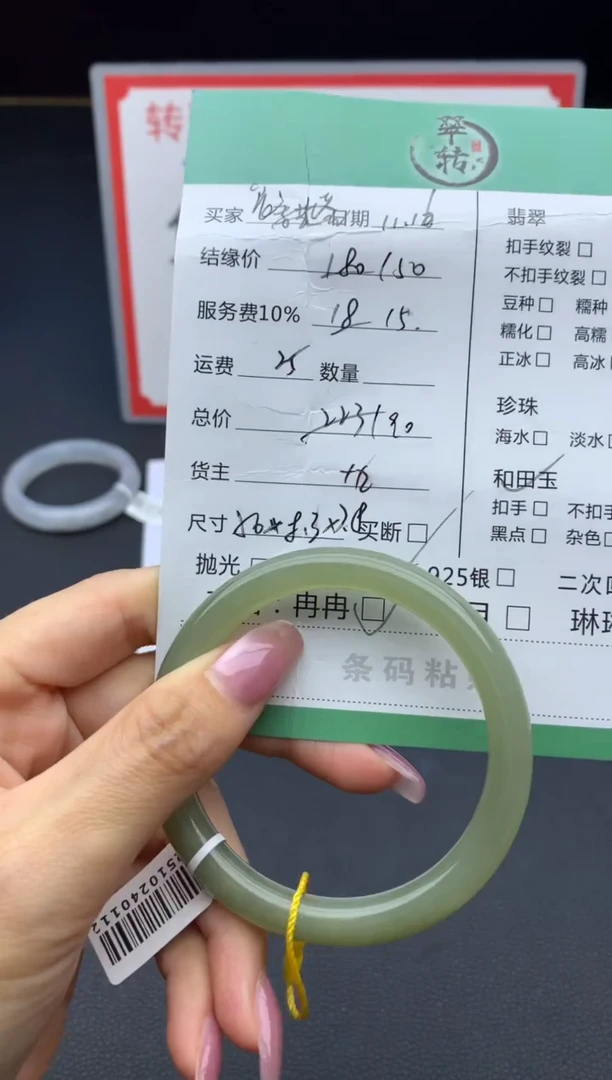 转
翠
转
买家 日期 11.16
结缘价 180/150
服务费10% 18 15.
运费 25 数量
总价 223/190
货主
尺寸 买断□
抛光 925银□ 二次
冉冉□ 琳
条码粘
翡翠
扣手纹裂□
不扣手纹裂□
豆种□ 糯种
糯化□ 高糯
正冰□ 高冰
珍珠
海水□ 淡水
和田玉
扣手□ 不扣手
黑点□ 杂色
2510240112